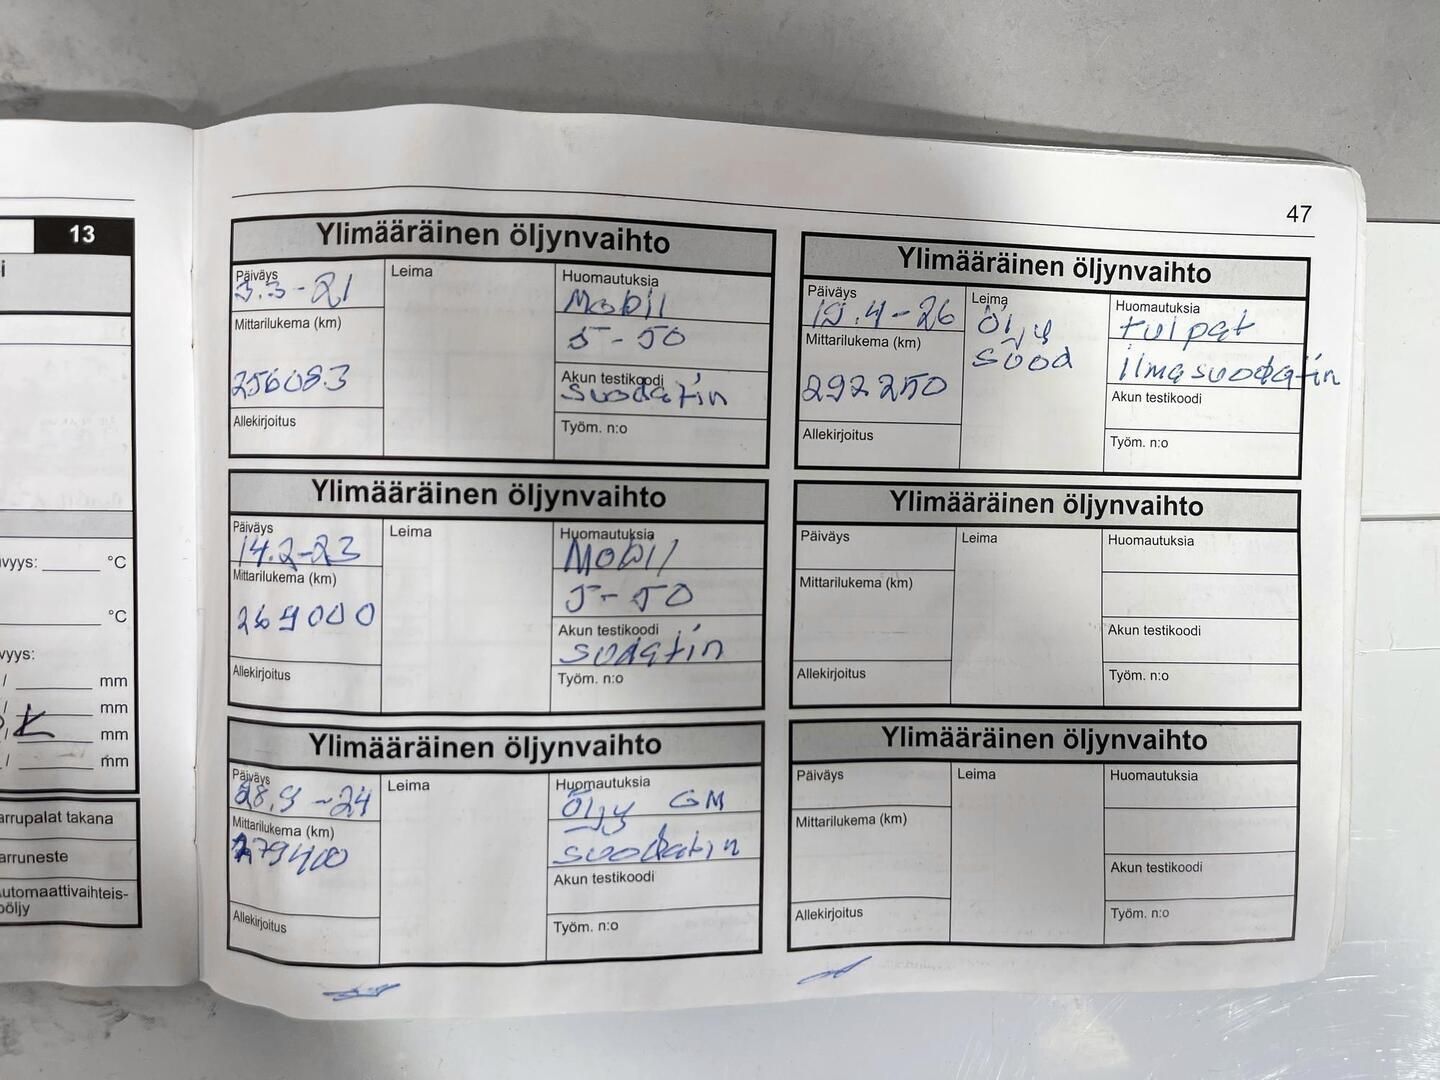 13
i
vyys: ____ °C
____ °C
vyys:
/ ____ mm
/ ____ mm
/ ____ mm
/ ____ mm
arrupalat takana
arruneste
utomaattivaihteis-
öljy
47
Ylimääräinen öljynvaihto
Päiväys
3.3-21
Leima
Huomautuksia
Mobil
5-50
Mittarilukema (km)
256083
Akun testikoodi
suodatin
Allekirjoitus
Työm. n:o
Ylimääräinen öljynvaihto
Päiväys
14.2-23
Leima
Huomautuksia
Mobil
5-50
Mittarilukema (km)
269000
Akun testikoodi
sudatin
Allekirjoitus
Työm. n:o
Ylimääräinen öljynvaihto
Päiväys
28.9-24
Leima
Huomautuksia
Öljy GM
suodatin
Mittarilukema (km)
279400
Akun testikoodi
Allekirjoitus
Työm. n:o
Ylimääräinen öljynvaihto
Päiväys
Leima
Öljy
suod
Huomautuksia
tulpat
ilmasuodatin
Mittarilukema (km)
292250
Akun testikoodi
Allekirjoitus
Työm. n:o
Ylimääräinen öljynvaihto
Päiväys
Leima
Huomautuksia
Mittarilukema (km)
Akun testikoodi
Allekirjoitus
Työm. n:o
Ylimääräinen öljynvaihto
Päiväys
Leima
Huomautuksia
Mittarilukema (km)
Akun testikoodi
Allekirjoitus
Työm. n:o